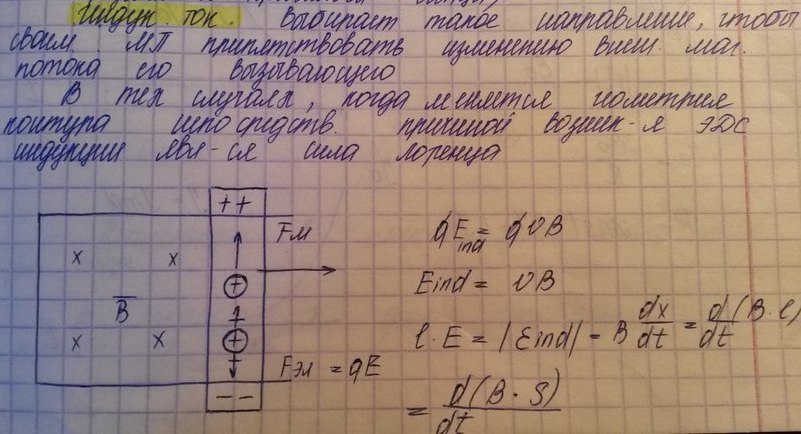 Индук. ток. выбирает такое направление, чтобы
своим МП припятствовать изменению внеш. маг.
потока его вызывающего
В тех случаях, когда меняется геометрия
контура непосредств. причиной возник-я ЭДС
индукции явл-ся сила Лоренца
++
Fм
x x
B
x x
+
+
Fэл = qE
--
qEind = qυB
Eind = υB
l·E = |εind| = B dx/dt = d(B·l)/dt
= d(B·S)/dt